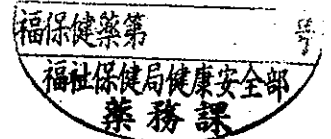 福保健薬第　　　　号
福祉保健局健康安全部
薬務課